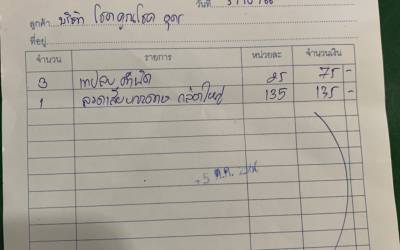 วันที่
ลูกค้า บริษัท โชคคูณโชค อุดร
ที่อยู่
จำนวน รายการ หน่วยละ จำนวนเงิน
3 เทปลบคำผิด 25 75 -
1 ลวดเสียบกระดาษ กล่องใหญ่ 135 135 -
5 ต.ค.